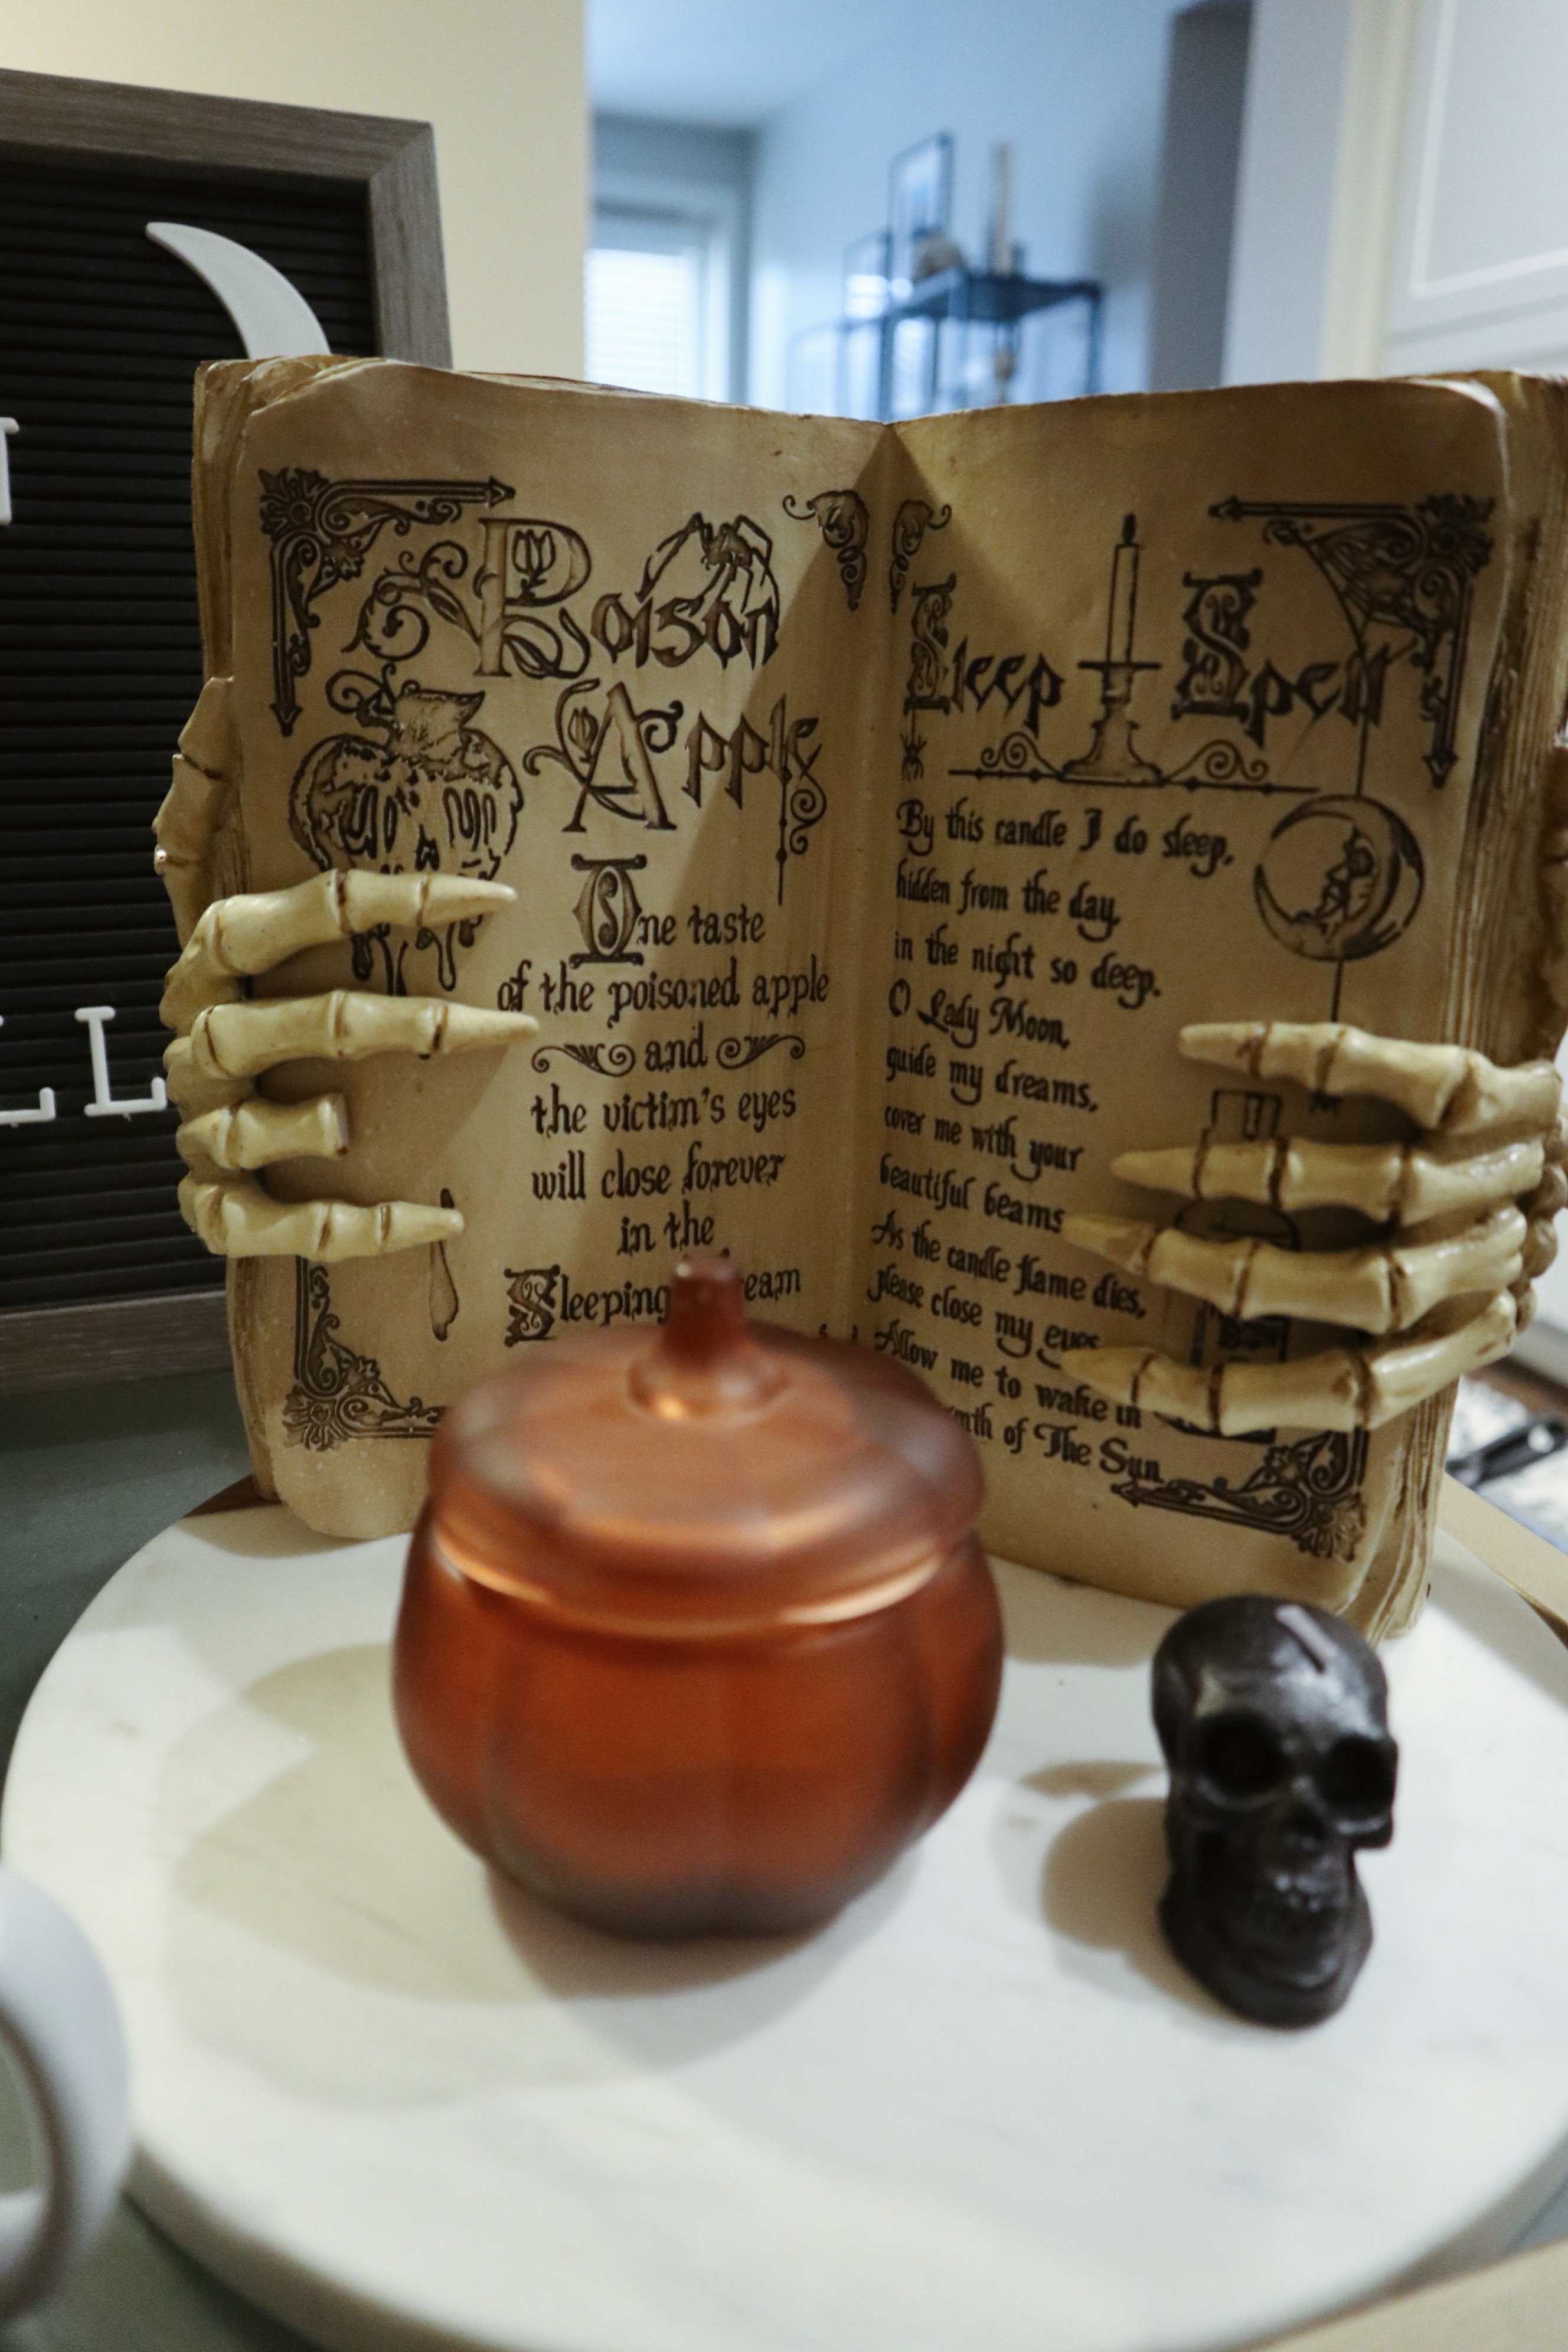 Poison
Apple
One taste
of the poisoned apple
and
the victim's eyes
will close forever
in the
Sleeping
Sleep Spell
By this candle I do sleep,
hidden from the day,
in the night so deep.
O Lady Moon,
guide my dreams,
cover me with your
beautiful beams
As the candle flame dies,
please close my eyes
Allow me to wake in
of The Sun
LL